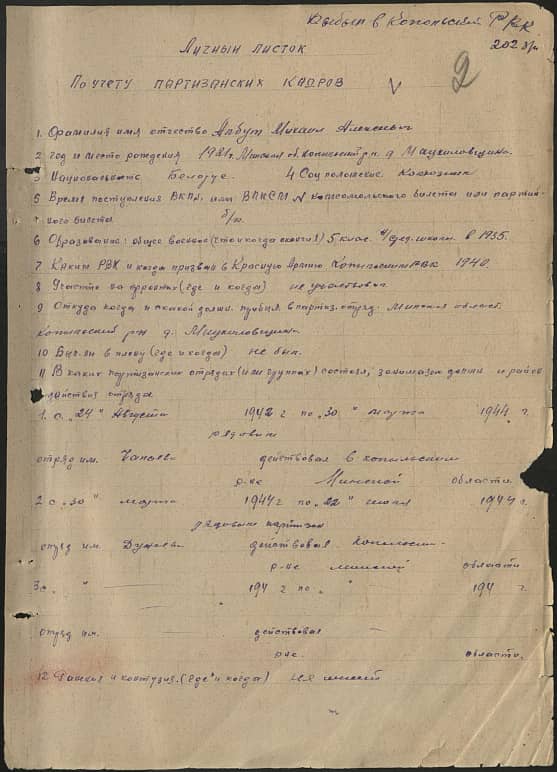 Выбыл в Копыльский РВК
202 з/п
2
Личный листок
По учету партизанских кадров V
1. Фамилия имя отчество Апбут Михаил Алексеевич
2 год и место рождения 1921 г. Минская об. Копыльский р.н. д
3 Национальность Белорус. 4 Соц положение. Колхозник
5 Время поступления ВКПб. или ВЛКСМ N комсомольского билета или партий-
ного билета б/п.
6 Образование: общее военное (что и когда окончил) 5 клас. школы в 1935.
7 Каким РВК и когда призван в Красную Армию Копыльским РВК 1940.
8 Участие на фронтах (где и когда) не участвовал
9 Откуда когда и какой должн. прибыл в партиз. отряд. Минская област.
Копыльский рн д.
10 Был ли в плену (где и когда) не был.
11 В каких партизанских отрядах (или группах) состоял, занимаемая должн и район
действия отряда
1. с „24" Августа 1942 г по „30" марта 1944 г.
рядовым
отряд им. Чапаева действовал в копыльском
р-не Минской области.
2 с „30" марта 1944 г по „22" июля 1944 г.
рядовым партизан
отряд им. Дунаева действовал копыльском
р-не минской области
3 с „ " 194 г по „ " 194 г.
отряд им. действовал
р-не. области.
12 Ранения и контузия. (где и когда) не имеет